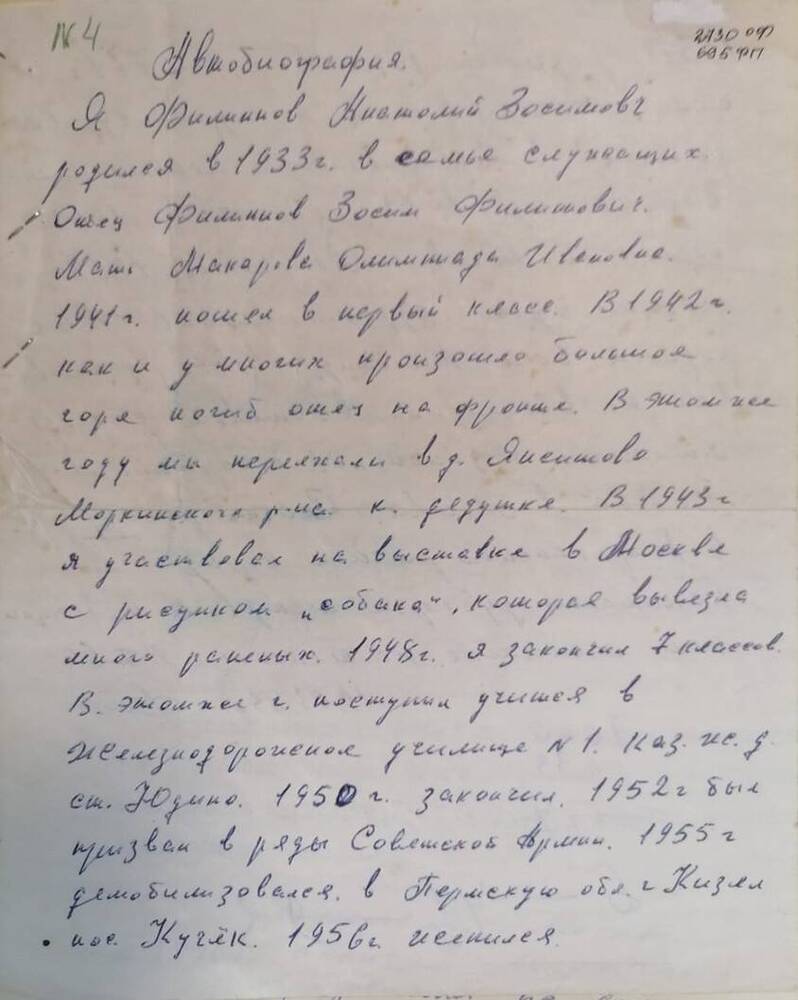 N 4
2730 ОФ
695 ФП
Автобиография.
Я Филиппов Анатолий Зосимовч
родился в 1933 г. в семье служащих.
Отец Филиппов Зосим Филиппович.
Мать Макарова Олимпиада Ивановна.
1941 г. пошел в первый класс. В 1942 г.
как и у многих произошло большое
горе погиб отец на фронте. В этом же
году мы переехали в д.
Моркинского р-на. к. дедушке. В 1943 г
я участвовал на выставке в Москве
с рисунком "собака", которая вывезла
много раненых. 1948г. я закончил 7 классов.
В. этомже г. поступил учится в
Железнодорожное училище N 1. Каз. ж. д.
ст. Юдино. 1950 г. закончил. 1952 г был
призван в ряды Советской Армии. 1955 г
демобилизовался. в Пермскую обл. г Кизел
пос. 1956г. женился.